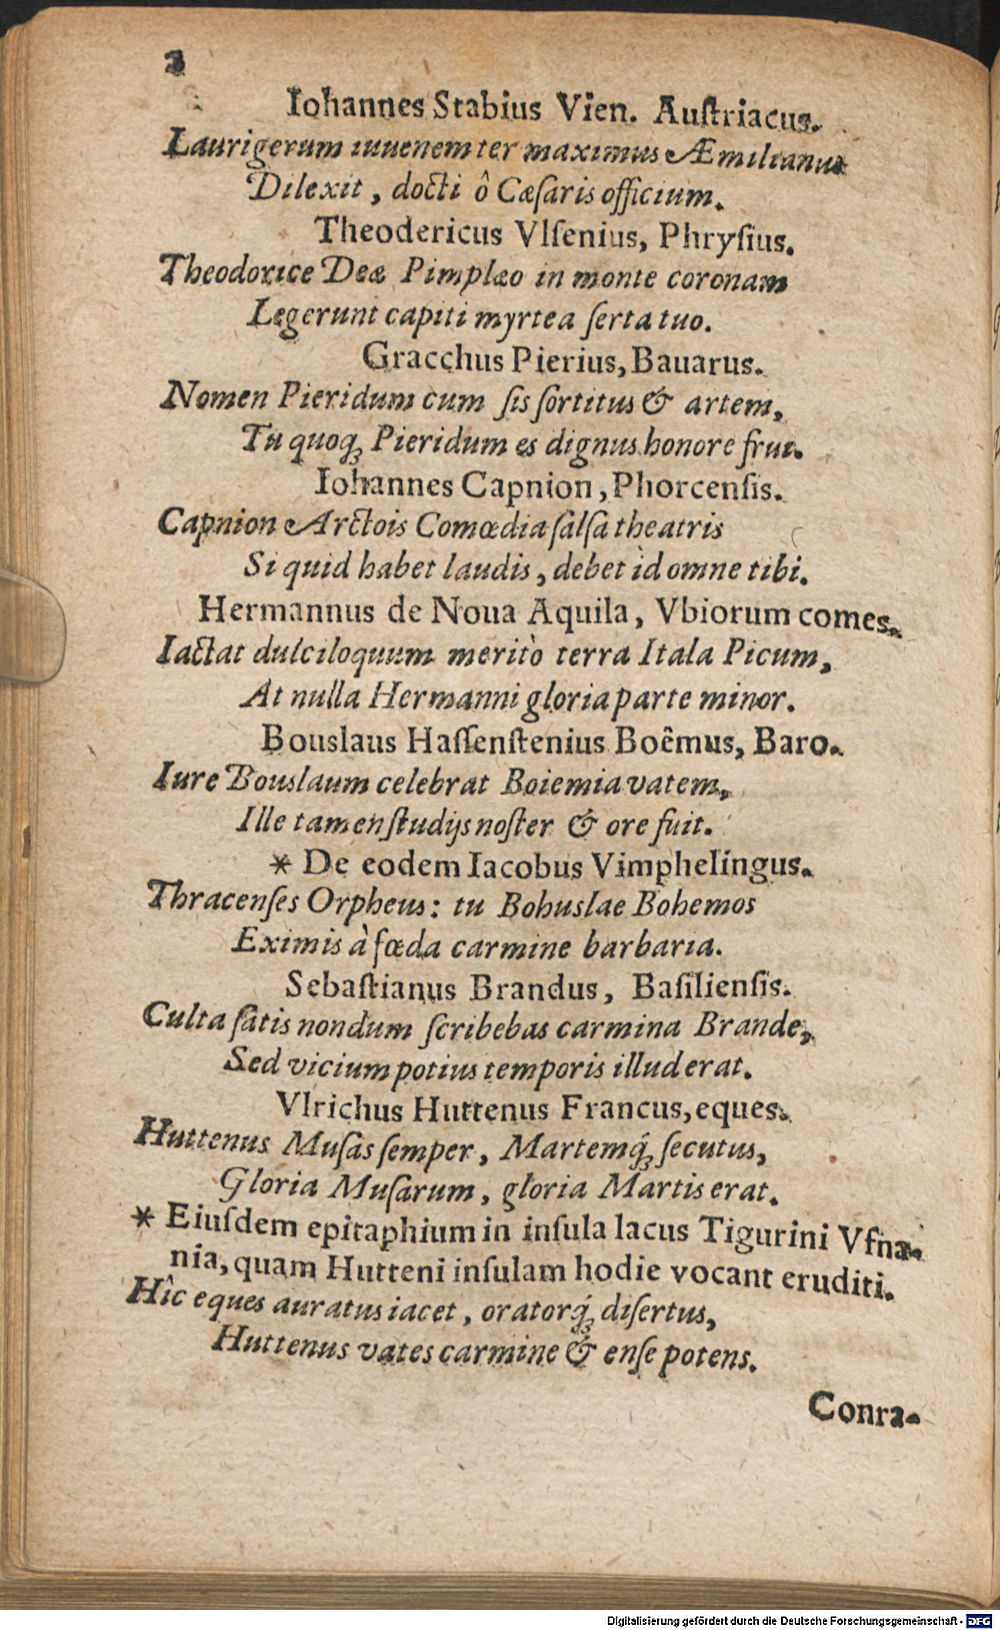 2
Iohannes Stabius Vien. Auſtriacus.
Laurigerum iuuenem ter maximus Æmilianus
Dilexit, docti ô Cæſaris officium.
Theodericus Vlſenius, Phryſius.
Theodorice Deæ Pimplæo in monte coronam
Legerunt capiti myrtea ſerta tuo.
Gracchus Pierius, Bauarus.
Nomen Pieridum cum ſis ſortitus & artem,
Tu quoq; Pieridum es dignus honore frui.
Iohannes Capnion, Phorcenſis.
Capnion Arctois Comœdia ſalſa theatris
Si quid habet laudis, debet id omne tibi.
Hermannus de Noua Aquila, Vbiorum comes.
Iactat dulciloquum meritò terra Itala Picum,
At nulla Hermanni gloria parte minor.
Bouslaus Haſſenſtenius Boêmus, Baro.
Iure Bouslaum celebrat Boiemia vatem,
Ille tamen ſtudijs noſter & ore fuit.
* De eodem Iacobus Vimphelingus.
Thracenſes Orpheus: tu Bohuslae Bohemos
Eximis à fœda carmine barbaria.
Sebaſtianus Brandus, Baſilienſis.
Culta ſatis nondum ſcribebas carmina Brande,
Sed vicium potius temporis illud erat.
Vlrichus Huttenus Francus, eques.
Huttenus Muſas ſemper, Martemq́; ſecutus,
Gloria Muſarum, gloria Martis erat.
* Eiuſdem epitaphium in inſula lacus Tigurini Vfna-
nia, quam Hutteni inſulam hodie vocant eruditi.
Hîc eques auratus iacet, oratorq́; diſertus,
Huttenus vates carmine & enſe potens.
Conra-
Digitalisierung gefördert durch die Deutsche Forschungsgemeinschaft - DFG